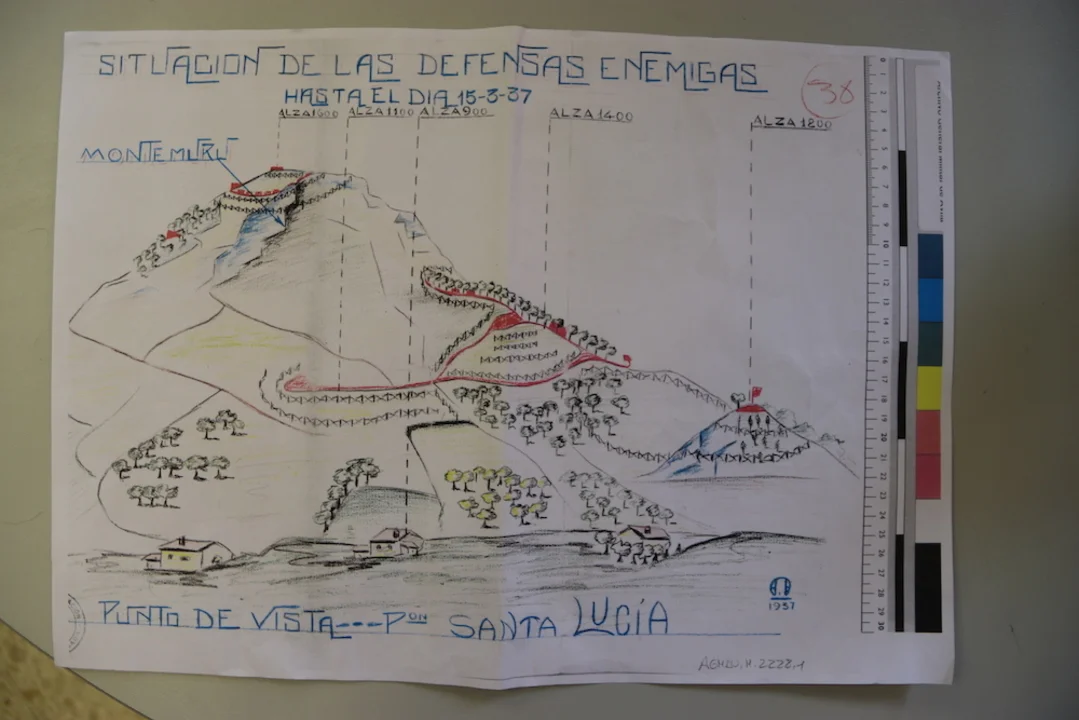 SITUACION DE LAS DEFENSAS ENEMIGAS
HASTA EL DIA 15-3-37
38
ALZA 1000 ALZA 1100 ALZA 900 ALZA 1400 ALZA 1200
MONTE MURU
1937
PUNTO DE VISTA---PON SANTA LUCÍA
0 2 3 4 5 6 7 8 9 10 11 12 13 14 15 16 17 18 19 20 21 22 23 24 25 26 27 28 29 30